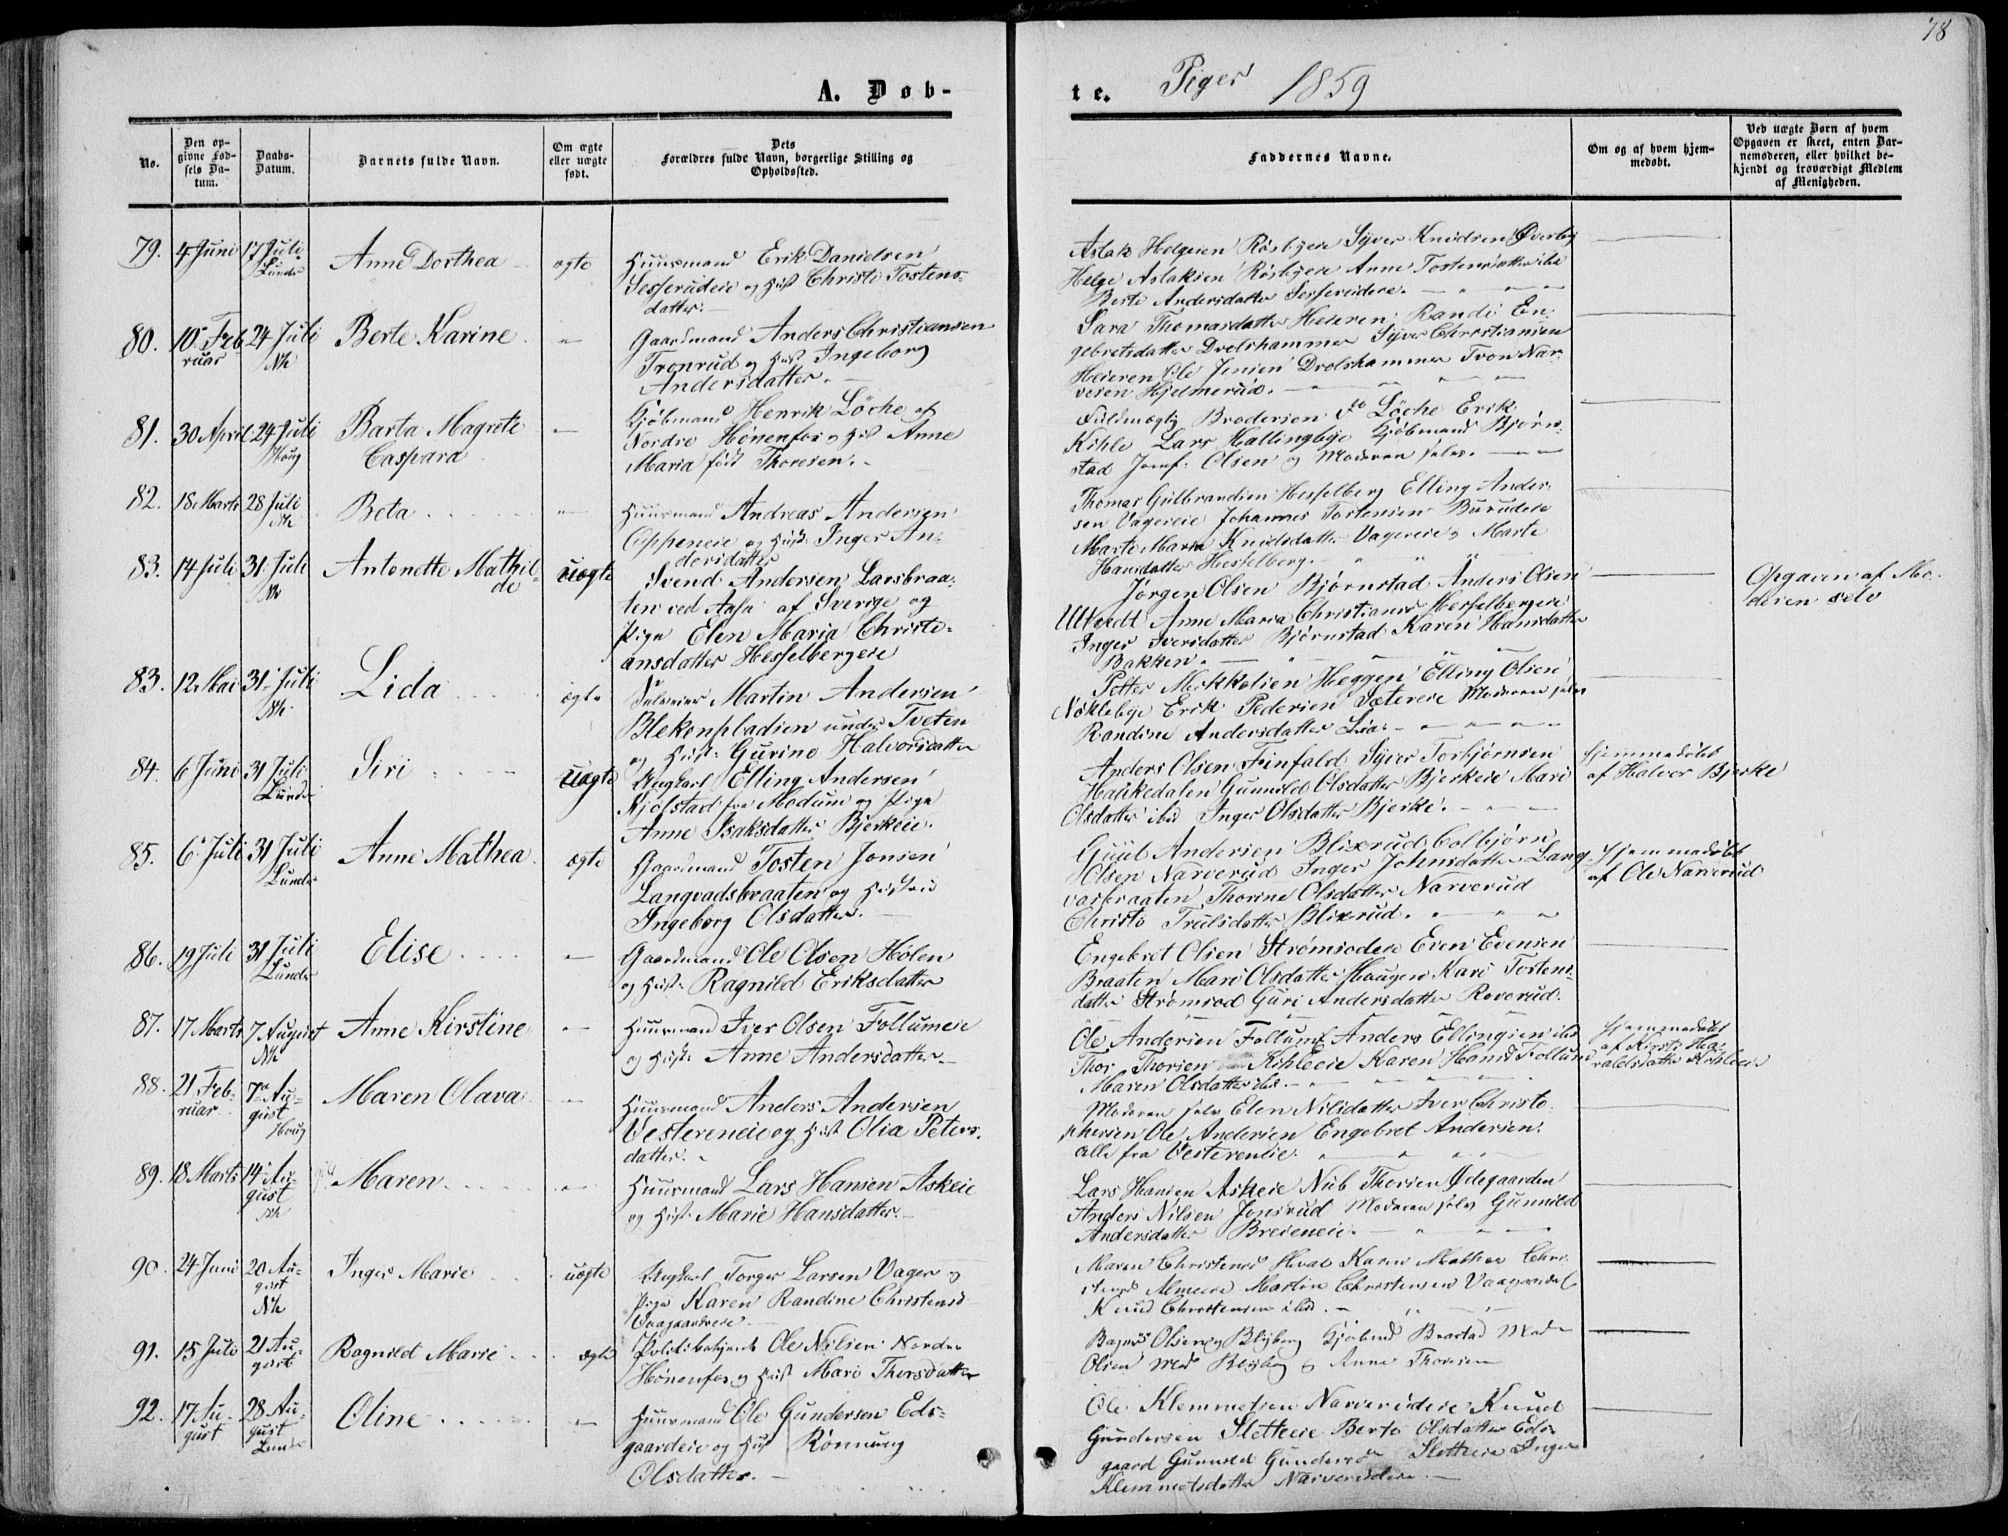 78
A. Døb-
te. Piger 1859
No.
Den op-
givne Fød-
sels Da-
tum.
Daabs-
Datum.
Barnets fulde Navn.
Om ægte
eller uægte
født.
Dets
Forældres fulde Navn, borgerlige Stilling og
Opholdssted.
Faddernes Navne.
Om og af hvem hjem-
medøbt.
Ved uægte Børn af hvem
Opgaven er skeet, enten Bar-
nemoderen, eller hvilket be-
kjendt og troværdigt Medlem
af Menigheden.
79. 4 Juni 17 Juli Lunder
Anne Dorthea
ægte
Huusmand Erik Danielsen
Sesserudeie og Hust Christi Tostens-
datter.
Aslak Helgesen Røsbjeie Syver Knudsen Øverby
Helge Aslaksen Røsbjeie Anne Tostensdatter ibd
Berte Andersdatter Sesserudeie.
80. 10 Feb
ruar
24 Juli
Nh
Berte Karine
Gaardmand Anders Christiansen
Tronrud og Hust Ingeborg
Andersdatter.
Sara Thomasdatter Heieren Randi En-
gebretsdatter Drolshammer Syver Christiansen
Heieren Ole Jensen Drolshammer Tron Nar-
vesen Hjelmerud.
81. 30 April 24 Juli
Houg
Barta Magrete
Caspara
Kjøbmand Henrik Löche af
Nordre Hønenfos og Hust Anne
Maria født Thoresen.
Fuldmægtig Brodersen Løche Erik
Kihle Lars Hallingbye Kjøbmand Bjørn-
stad Jomf: Olsen og Moderen selv.
82. 18 Marts 28 Juli
Nh
Beta
Huusmand Andreas Andersen
Oppeneie og Hust: Inger An-
dersdatter
Thomas Gulbrandsen Hesselberg Elling Ander-
sen Vagereie Johannes Tostensen Burudeie
Marte Maria Knudsdatter Vagereie Marte
Hansdatter Hesselberg.
83. 14 Juli 31 Juli
Nh
Antonette Mathil-
de
uægte
Svend Andersen Larsbraa-
ten ved Aasa af Sverige og
Pige Elen Maria Christi-
ansdatter Hesselbergeie
Jørgen Olsen Bjørnstad Anders Olsen
Ultvedt Anne Maria Christians Hesselbergeie
Inger Iversdatter Bjørnstad Karen Hansdatter
Bakken.
Opgaven af Mo-
deren selv
83. 12 Mai 31 Juli
Nh
Lida
ægte
Selveier Martin Andersen
Blekenspladsen under Tveten
og Hust: Gurine Halvorsdatter
Petter Mikkelsen Heggen Elling Olsen
Nøklebye Erik Pedersen Sætereie Moderen selv
Randine Andersdatter Lia.
84. 6 Juni 31 Juli
Lunder
Siri
uægte
Ungkarl Elling Andersen
Kjølstad fra Modum og Pige
Anne Isaksdatter Bjerkeie.
Anders Olsen Finfald Syver Torbjørnsen
Haukedalen Gunnild Olsdatter Bjerkeie Mari
Olsdatter ibd Inger Olsdatter Bjerke.
Hjemmedøbt
af Halvor Bjerke
85. 6 Juli 31 Juli
Lunder
Anne Mathea
ægte
Gaardmand Tosten Jonsen
Langvadsbraaten og Hustru
Ingeborg Olsdatter.
Guul Andersen Blixrud Colbjørn
Olsen Narverud Inger Johnsdatter Lang-
vasbraaten Thorine Olsdatter Narverud
Christi Trulsdatter Blixrud.
Hjemmedøbt
af Ole Narverud
86. 19 Juli 31 Juli
Lunder
Elise
Gaardmand Ole Olsen Hølen
og Hust: Ragnild Eriksdatter
Engebret Olsen Strømsodeie Even Evensen
Braaten Mari Olsdatter Haugen Kari Tostens-
datter Strømsod Guri Andersdatter Roverud.
87. 17 Marts 7 August
Nh
Anne Kirstine
Huusmand Iver Olsen Follumeie
og Hust: Anne Andersdatter.
Ole Andersen Follum Anders Ellingsen ibd
Thor Thorsen Kihleeie Karen Hansd Follum
Maren Olsdatter ibd.
Hjemmedøbt
af Kirsti Ha-
raldsdatter Kihleeie
88. 21 Feb-
ruar
7 Au-
gust
Houg
Maren Olava
Huusmand Anders Andersen
Vestereneie og Hust Olia Peters-
datter.
Moderen selv Elen Nilsdatter Iver Christo-
phersen Ole Andersen Engebret Andersen.
alle fra Vestereneie.
89. 18 Marts 14 Au-
gust
Nh
Maren
Huusmand Lars Hansen Askeie
og Hust: Marie Hansdatter.
Lars Hansen Askeie Nub Thorsen Ødegaarden
Anders Nilsen Jonsrud Moderen selv Gunnild
Andersdatter Breieneie.
90. 24 Juni 20 Au-
gust
Nh
Inger Marie
uægte
Ungkarl Torger Larsen Vager og
Pige Karen Randine Christensd
Vaagaardseie
Maren Christensd Hval Karen Mathea Chri-
stensd Almeeie Martin Christensen Vaagaard
Knud Christensen ibd.
91. 15 Juli 21 Au-
gust
Ragnild Marie
ægte
Politibetjent Ole Nilsen Nordre
Hönenfos og Hust Mari Thorsdatter
Bager Olsen og Blyberg Kjøbmd Braastad Mad
Olsen Mad Blyberg og Anne Thoresen
92. 17 Au-
gust
28 Au-
gust
Lunder
Oline
Huusmand Ole Gundersen Eds-
gaardeie og Hust Rönnaug
Olsdatter.
Ole Klemmetsen Narverudeie Knud
Gundersen Sletteeie Berte Olsdatter Eds-
gaard Gunnild Gundersd Sletteeie Inger
Klemmetsdatter Narverudeie